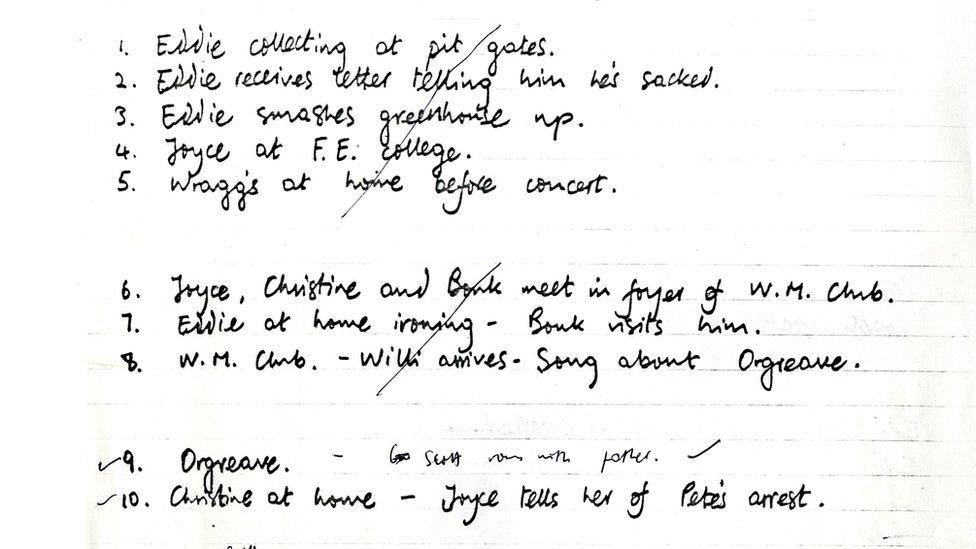 1. Eddie collecting at pit gates.
2. Eddie receives letter telling him he's sacked.
3. Eddie smashes greenhouse up.
4. Joyce at F.E. college.
5. Wragg's at home before concert.
6. Joyce, Christine and Bonk meet in foyer of W.M. Club.
7. Eddie at home ironing - Bonk visits him.
8. W.M. Club. - Willi arrives - Song about Orgreave.
✓9. Orgreave. - row with father. ✓
✓10. Christine at home - Joyce tells her of Pete's arrest.